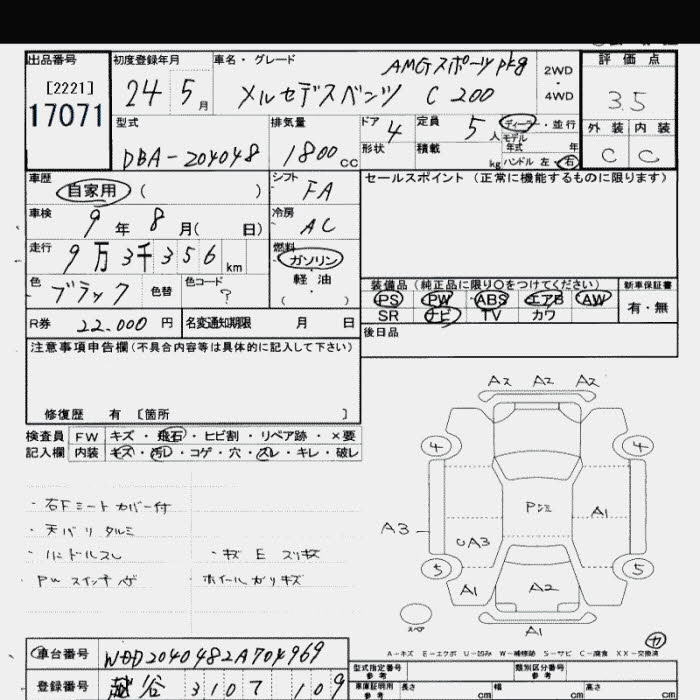 出品番号
[2221]
17071
初度登録年月
24 5月
車名・グレード
AMGスポーツPkg
メルセデスベンツ C 200
2WD
4WD
評価点
3.5
外装 内装
C C
型式
DBA-204048
排気量
1800cc
ドア 4
形状
定員 5人
積載 kg
ディーラー・並行
モデル年式 年
ハンドル 左・右
車歴
自家用 ( )
シフト
FA
セールスポイント (正常に機能するものに限ります)
車検
9年8月( 日)
冷房
AC
走行
9万3千356km
燃料
ガソリン
軽・油
( )
色
ブラック
色替
色コード
?
装備品 (純正品に限り〇をつけてください)
PS PW ABS エアB AW
SR ナビ TV カワ
新車保証書
有・無
R券 22,000円
名変通知期限 月 日
後日品
注意事項申告欄(不具合内容等は具体的に記入して下さい)
修復歴 有 [箇所 ]
検査員 FW キズ・飛石・ヒビ割・リペア跡・×要
記入欄 内装 キズ・汚レ・コゲ・穴・スレ・キレ・破レ
・右Fシートカバー付
・天バリタルミ
・ハンドルスレ
・キズ E スリキズ
・PWスイッチハゲ
・ホイールガリキズ
A2 A2 A2
4 4
A1
A3
A3
5 5
A1
A2
A1
スペア
A-キズ E-エクボ U-凹み W-補修跡 S-サビ C-腐食 XX-交換済
車台番号
WDD2040482A704969
登録番号
越谷 310 7 109
型式指定番号
類別区分番号
車庫証明用参考
長さ cm
幅 cm
高さ cm